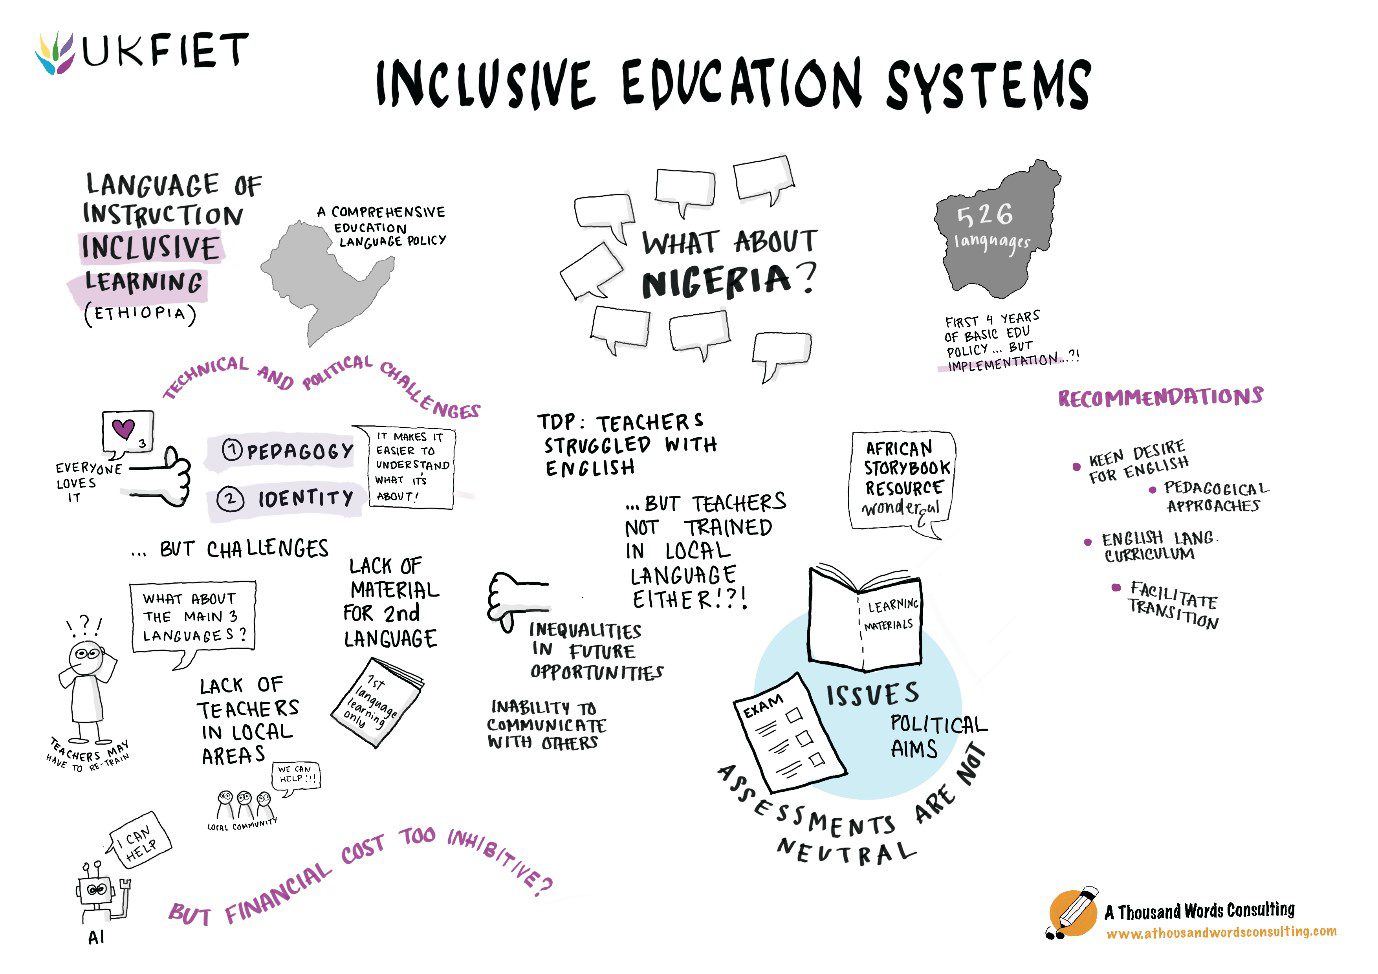 UKFIET
INCLUSIVE EDUCATION SYSTEMS
LANGUAGE OF
INSTRUCTION
INCLUSIVE
LEARNING
(ETHIOPIA)
A COMPREHENSIVE
EDUCATION
LANGUAGE POLICY
TECHNICAL AND POLITICAL CHALLENGES
3
EVERYONE
LOVES
IT
1 PEDAGOGY
2 IDENTITY
IT MAKES IT
EASIER TO
UNDERSTAND
WHAT IT'S
ABOUT!
... BUT CHALLENGES
WHAT ABOUT
THE MAIN 3
LANGUAGES?
!?!
TEACHERS MAY
HAVE TO RE-TRAIN
LACK OF
TEACHERS
IN LOCAL
AREAS
WE CAN
HELP!!!
LOCAL COMMUNITY
LACK OF
MATERIAL
FOR 2nd
LANGUAGE
1st
language
learning
only
INEQUALITIES
IN FUTURE
OPPORTUNITIES
INABILITY TO
COMMUNICATE
WITH OTHERS
I CAN
HELP
AI
BUT FINANCIAL COST TOO INHIBITIVE?
WHAT ABOUT
NIGERIA?
526
languages
FIRST 4 YEARS
OF BASIC EDU
POLICY... BUT
IMPLEMENTATION...?!
TDP: TEACHERS
STRUGGLED WITH
ENGLISH
...BUT TEACHERS
NOT TRAINED
IN LOCAL
LANGUAGE
EITHER!?!
AFRICAN
STORYBOOK
RESOURCE
wonderful
LEARNING
MATERIALS
ISSUES
EXAM
POLITICAL
AIMS
ASSESSMENTS ARE NOT
NEUTRAL
RECOMMENDATIONS
• KEEN DESIRE
FOR ENGLISH
• PEDAGOGICAL
APPROACHES
• ENGLISH LANG.
CURRICULUM
• FACILITATE
TRANSITION
A Thousand Words Consulting
www.athousandwordsconsulting.com